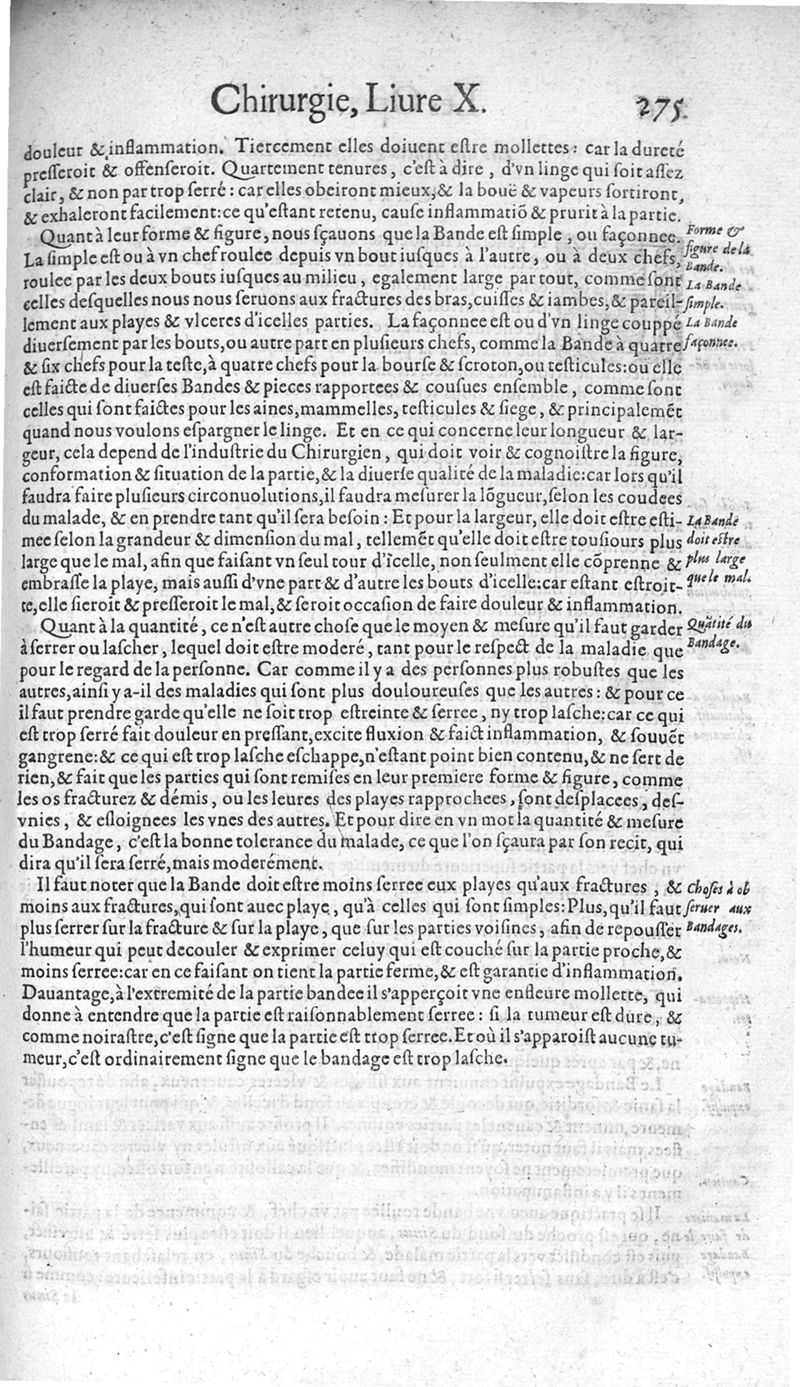 Chirurgie, Liure X. 275
douleur & inflammation. Tiercement elles doiuent eſtre mollettes : car la dureté
preſſeroit & offenſeroit. Quartement tenures, c'eſt à dire, d'vn linge qui ſoit aſſez
clair, & non par trop ſerré : car elles obeiront mieux, & la bouë & vapeurs ſortiront,
& exhaleront facilement: ce qu'eſtant retenu, cauſe inflammatiõ & prurit à la partie.
Quant à leur forme & figure, nous ſçauons que la Bande eſt ſimple, ou façonnee.
La ſimple eſt ou à vn chef roulee depuis vn bout iuſques à l'autre, ou à deux chefs,
roulee par les deux bouts iuſques au milieu, egalement large par tout, comme ſont
celles deſquelles nous nous ſeruons aux fractures des bras, cuiſſes & iambes, & pareil-
lement aux playes & vlceres d'icelles parties. La façonnee eſt ou d'vn linge couppé
diuerſement par les bouts, ou autre part en pluſieurs chefs, comme la Bande à quatre
& ſix chefs pour la teſte, à quatre chefs pour la bourſe & ſcroton, ou teſticules: ou elle
eſt faicte de diuerſes Bandes & pieces rapportees & couſues enſemble, comme ſont
celles qui ſont faictes pour les aines, mammelles, teſticules & ſiege, & principalemẽt
quand nous voulons eſpargner le linge. Et en ce qui concerne leur longueur & lar-
geur, cela depend de l'induſtrie du Chirurgien, qui doit voir & cognoiſtre la figure,
conformation & ſituation de la partie, & la diuerſe qualité de la maladie: car lors qu'il
faudra faire pluſieurs circonuolutions, il faudra meſurer la lõgueur, ſelon les coudees
du malade, & en prendre tant qu'il ſera beſoin : Et pour la largeur, elle doit eſtre eſti-
mee ſelon la grandeur & dimenſion du mal, tellemẽt qu'elle doit eſtre touſiours plus
large que le mal, afin que faiſant vn ſeul tour d'icelle, non ſeulment elle cõprenne &
embraſſe la playe, mais auſſi d'vne part & d'autre les bouts d'icelle: car eſtant eſtroit-
te, elle ſieroit & preſſeroit le mal, & ſeroit occaſion de faire douleur & inflammation.
Quant à la quantité, ce n'eſt autre choſe que le moyen & meſure qu'il faut garder
à ſerrer ou laſcher, lequel doit eſtre moderé, tant pour le reſpect de la maladie que
pour le regard de la perſonne. Car comme il y a des perſonnes plus robuſtes que les
autres, ainſi y a-il des maladies qui ſont plus douloureuſes que les autres : & pour ce
il faut prendre garde qu'elle ne ſoit trop eſtreinte & ſerree, ny trop laſche: car ce qui
eſt trop ſerré fait douleur en preſſant, excite fluxion & faict inflammation, & ſouuẽt
gangrene: & ce qui eſt trop laſche eſchappe, n'eſtant point bien contenu, & ne ſert de
rien, & fait que les parties qui ſont remiſes en leur premiere forme & figure, comme
les os fracturez & démis, ou les leures des playes rapprochees, ſont deſplacees, deſ-
vnies, & eſloignees les vnes des autres. Et pour dire en vn mot la quantité & meſure
du Bandage, c'eſt la bonne tolerance du malade, ce que l'on ſçaura par ſon recit, qui
dira qu'il ſera ſerré, mais moderément.
Il faut noter que la Bande doit eſtre moins ſerree eux playes qu'aux fractures, &
moins aux fractures, qui ſont auec playe, qu'à celles qui ſont ſimples: Plus, qu'il faut
plus ſerrer ſur la fracture & ſur la playe, que ſur les parties voiſines, afin de repouſſer
l'humeur qui peut decouler & exprimer celuy qui eſt couché ſur la partie proche, &
moins ſerree: car en ce faiſant on tient la partie ferme, & eſt garantie d'inflammation.
Dauantage, à l'extremité de la partie bandee il s'apperçoit vne enfleure mollette, qui
donne à entendre que la partie eſt raiſonnablement ſerree : ſi la tumeur eſt dure, &
comme noiraſtre, c'eſt ſigne que la partie eſt trop ſerree. Et où il s'apparoiſt aucune tu-
meur, c'eſt ordinairement ſigne que le bandage eſt trop laſche.
Forme &
figure de la
Bande.
La Bande
ſimple.
La Bande
façonnee.
La Bande
doit eſtre
plus large
que le mal.
Quãtité du
Bandage.
Choſes à ob
ſeruer aux
Bandages.